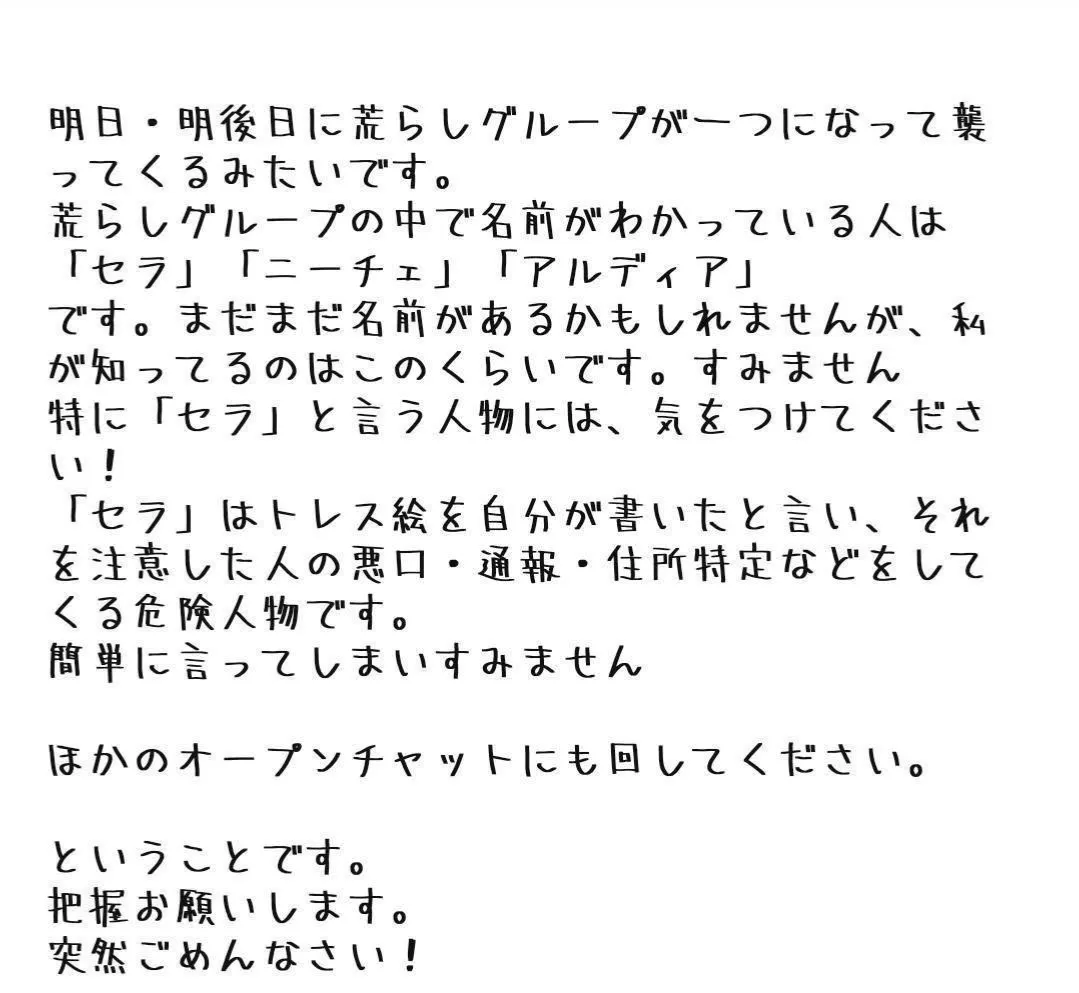 明日・明後日に荒らしグループが一つになって襲
ってくるみたいです。
荒らしグループの中で名前がわかっている人は
「セラ」「ニーチェ」「アルディア」
です。まだまだ名前があるかもしれませんが、私
が知ってるのはこのくらいです。すみません
特に「セラ」と言う人物には、気をつけてくださ
い！
「セラ」はトレス絵を自分が書いたと言い、それ
を注意した人の悪口・通報・住所特定などをして
くる危険人物です。
簡単に言ってしまいすみません
ほかのオープンチャットにも回してください。
ということです。
把握お願いします。
突然ごめんなさい！